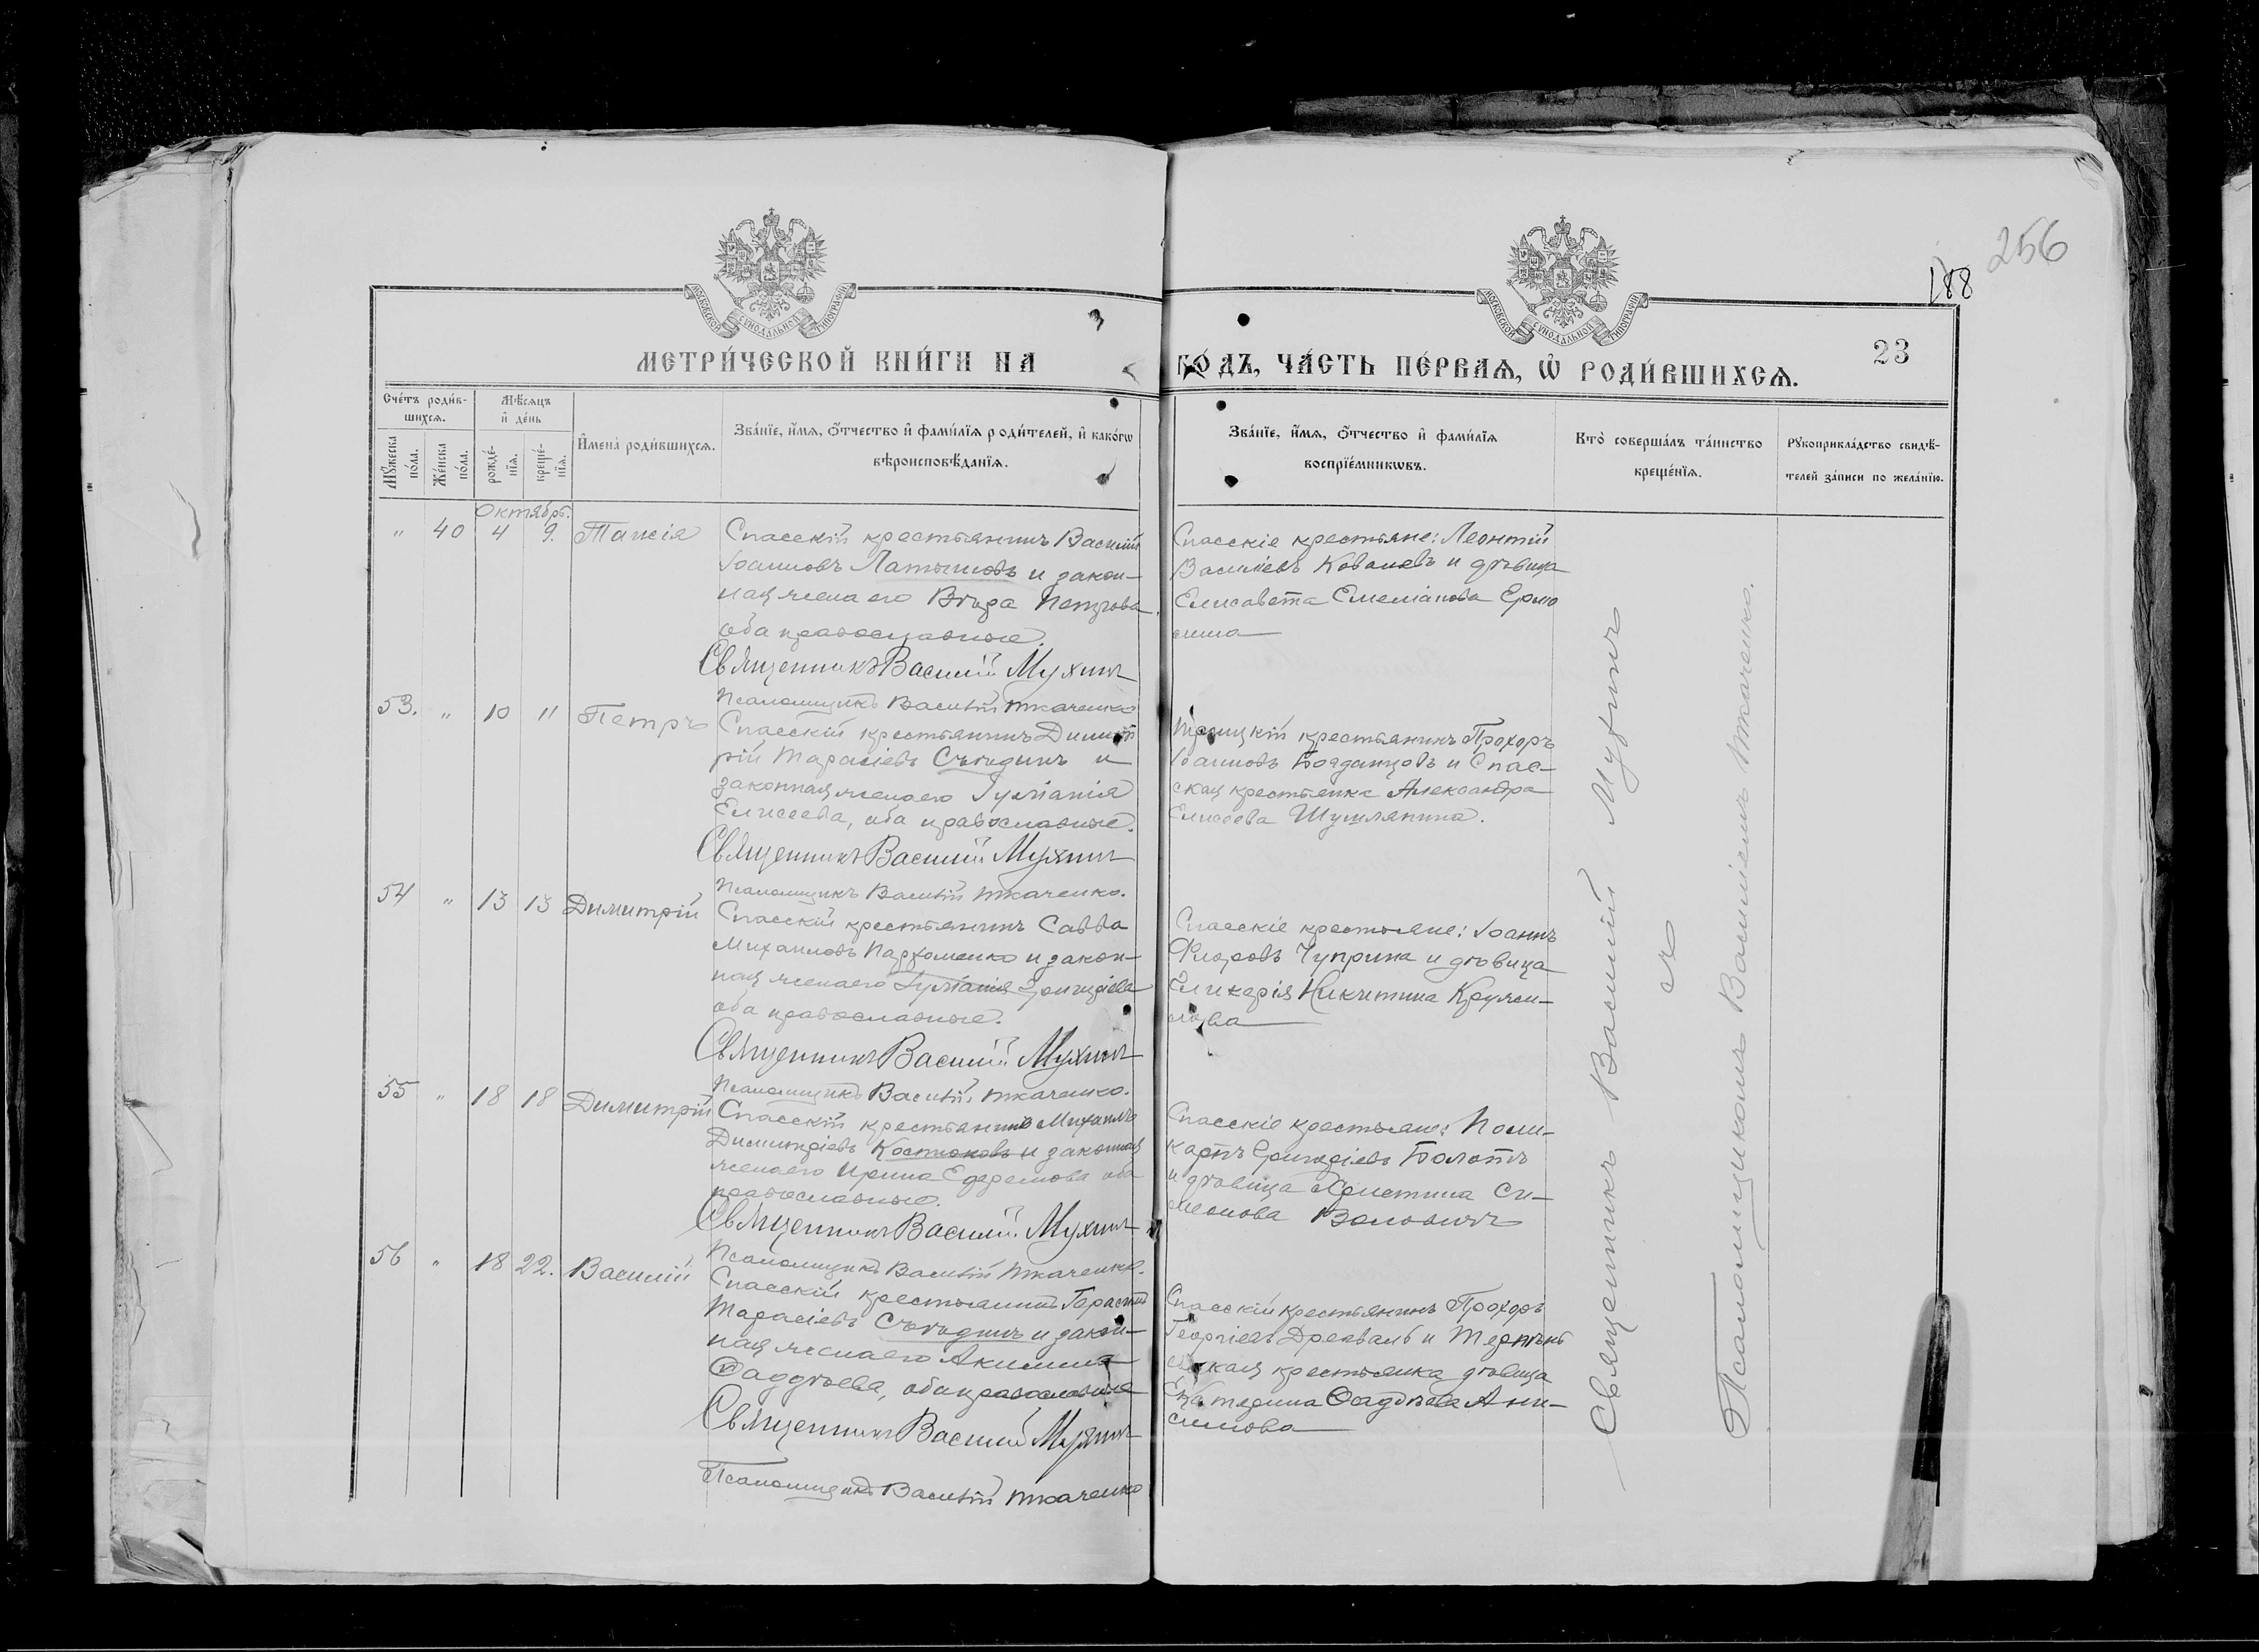 256
188
МОСКОВСКОЙ СѴНОДАЛЬНОЙ ТИПОГРАФІИ
МОСКОВСКОЙ СѴНОДАЛЬНОЙ ТИПОГРАФІИ
МЕТРИ́ЧЕСКОЙ КНИ́ГИ НА
ГО́ДЪ, ЧА́СТЬ ПЕ́РВАѦ, Ѡ҆ РОДИ́ВШИХСѦ.
23
Сче́тъ роди́в-
шихсѧ.
Мꙋ́жеска по́ла.
Же́нска по́ла.
Мѣ́сѧцъ
и҆ де́нь
рожде́-
нїѧ.
креще́-
нїѧ.
И҆мена̀ роди́вшихсѧ.
Зва́нїе, и҆́мѧ, ѻ҆́тчество и҆ фами́лїѧ роди́телей, и҆ како́гѡ
вѣроисповѣ́данїѧ.
Зва́нїе, и҆́мѧ, ѻ҆́тчество и҆ фами́лїѧ
воспрїе́мникѡвъ.
Кто̀ соверша́лъ та́инство
креще́нїѧ.
Рꙋкоприкла́дство свидѣ́-
телей за́писи по жела́нїю.
Октябрь.
" 40 4 9. Таисія
Спасскій крестьянинъ Василій
Іоанновъ Латышовъ и закон-
ная жена его Вѣра Петрова
оба православные.
Священникъ Василій Мухинъ
Псаломщикъ Василій Ткаченко
Спасскіе крестьяне: Леонтій
Василіевъ Ковалевъ и дѣвица
Елисавета Емеліанова Ермо
шина
53. " 10 11 Петръ
Спасскій крестьянинъ Димит
рій Тарасіевъ Съѣдинъ и
законная жена его Іуліанія
Елисеева, оба православные.
Священникъ Василій Мухинъ
Псаломщикъ Василій Ткаченко.
Троицкій крестьянинъ Прохоръ
Іоанновъ Богданцовъ и Спас-
ская крестьянка Александра
Елисеева Шушлянина.
54 " 13 13 Димитрій
Спасскій крестьянинъ Савва
Михаиловъ Пархоменко и закон-
ная жена его Іуліанія Григоріева
оба православные.
Священникъ Василій Мухинъ
Псаломщикъ Василій Ткаченко.
Спасскіе крестьяне: Іоаннъ
Флоровъ Чуприна и дѣвица
Гликерія Никитина
55 " 18 18 Димитрій
Спасскій крестьянинъ Михаилъ
Димитріевъ Костюковъ и законная
жена его Ирина Ефремова оба
православные.
Священникъ Василій Мухинъ
Псаломщикъ Василій Ткаченко.
Спасскіе крестьяне: Поли-
карпъ Григоріевъ Болотъ
и дѣвица Христина Си-
меонова Воловикъ
56 " 18 22. Василій
Спасскій крестьянинъ
Тарасіевъ Съѣдинъ и закон-
ная жена его Акилина
Фаддѣева, оба православные
Священникъ Василій Мухинъ
Псаломщикъ Василій Ткаченко
Спасскій крестьянинъ Прохоръ
Георгіевъ Дрекваль и
ская крестьянка дѣвица
Екатерина Фаддѣева Ани-
симова
Священникъ Василій Мухинъ
съ
Псаломщикомъ Василіемъ Ткаченко.